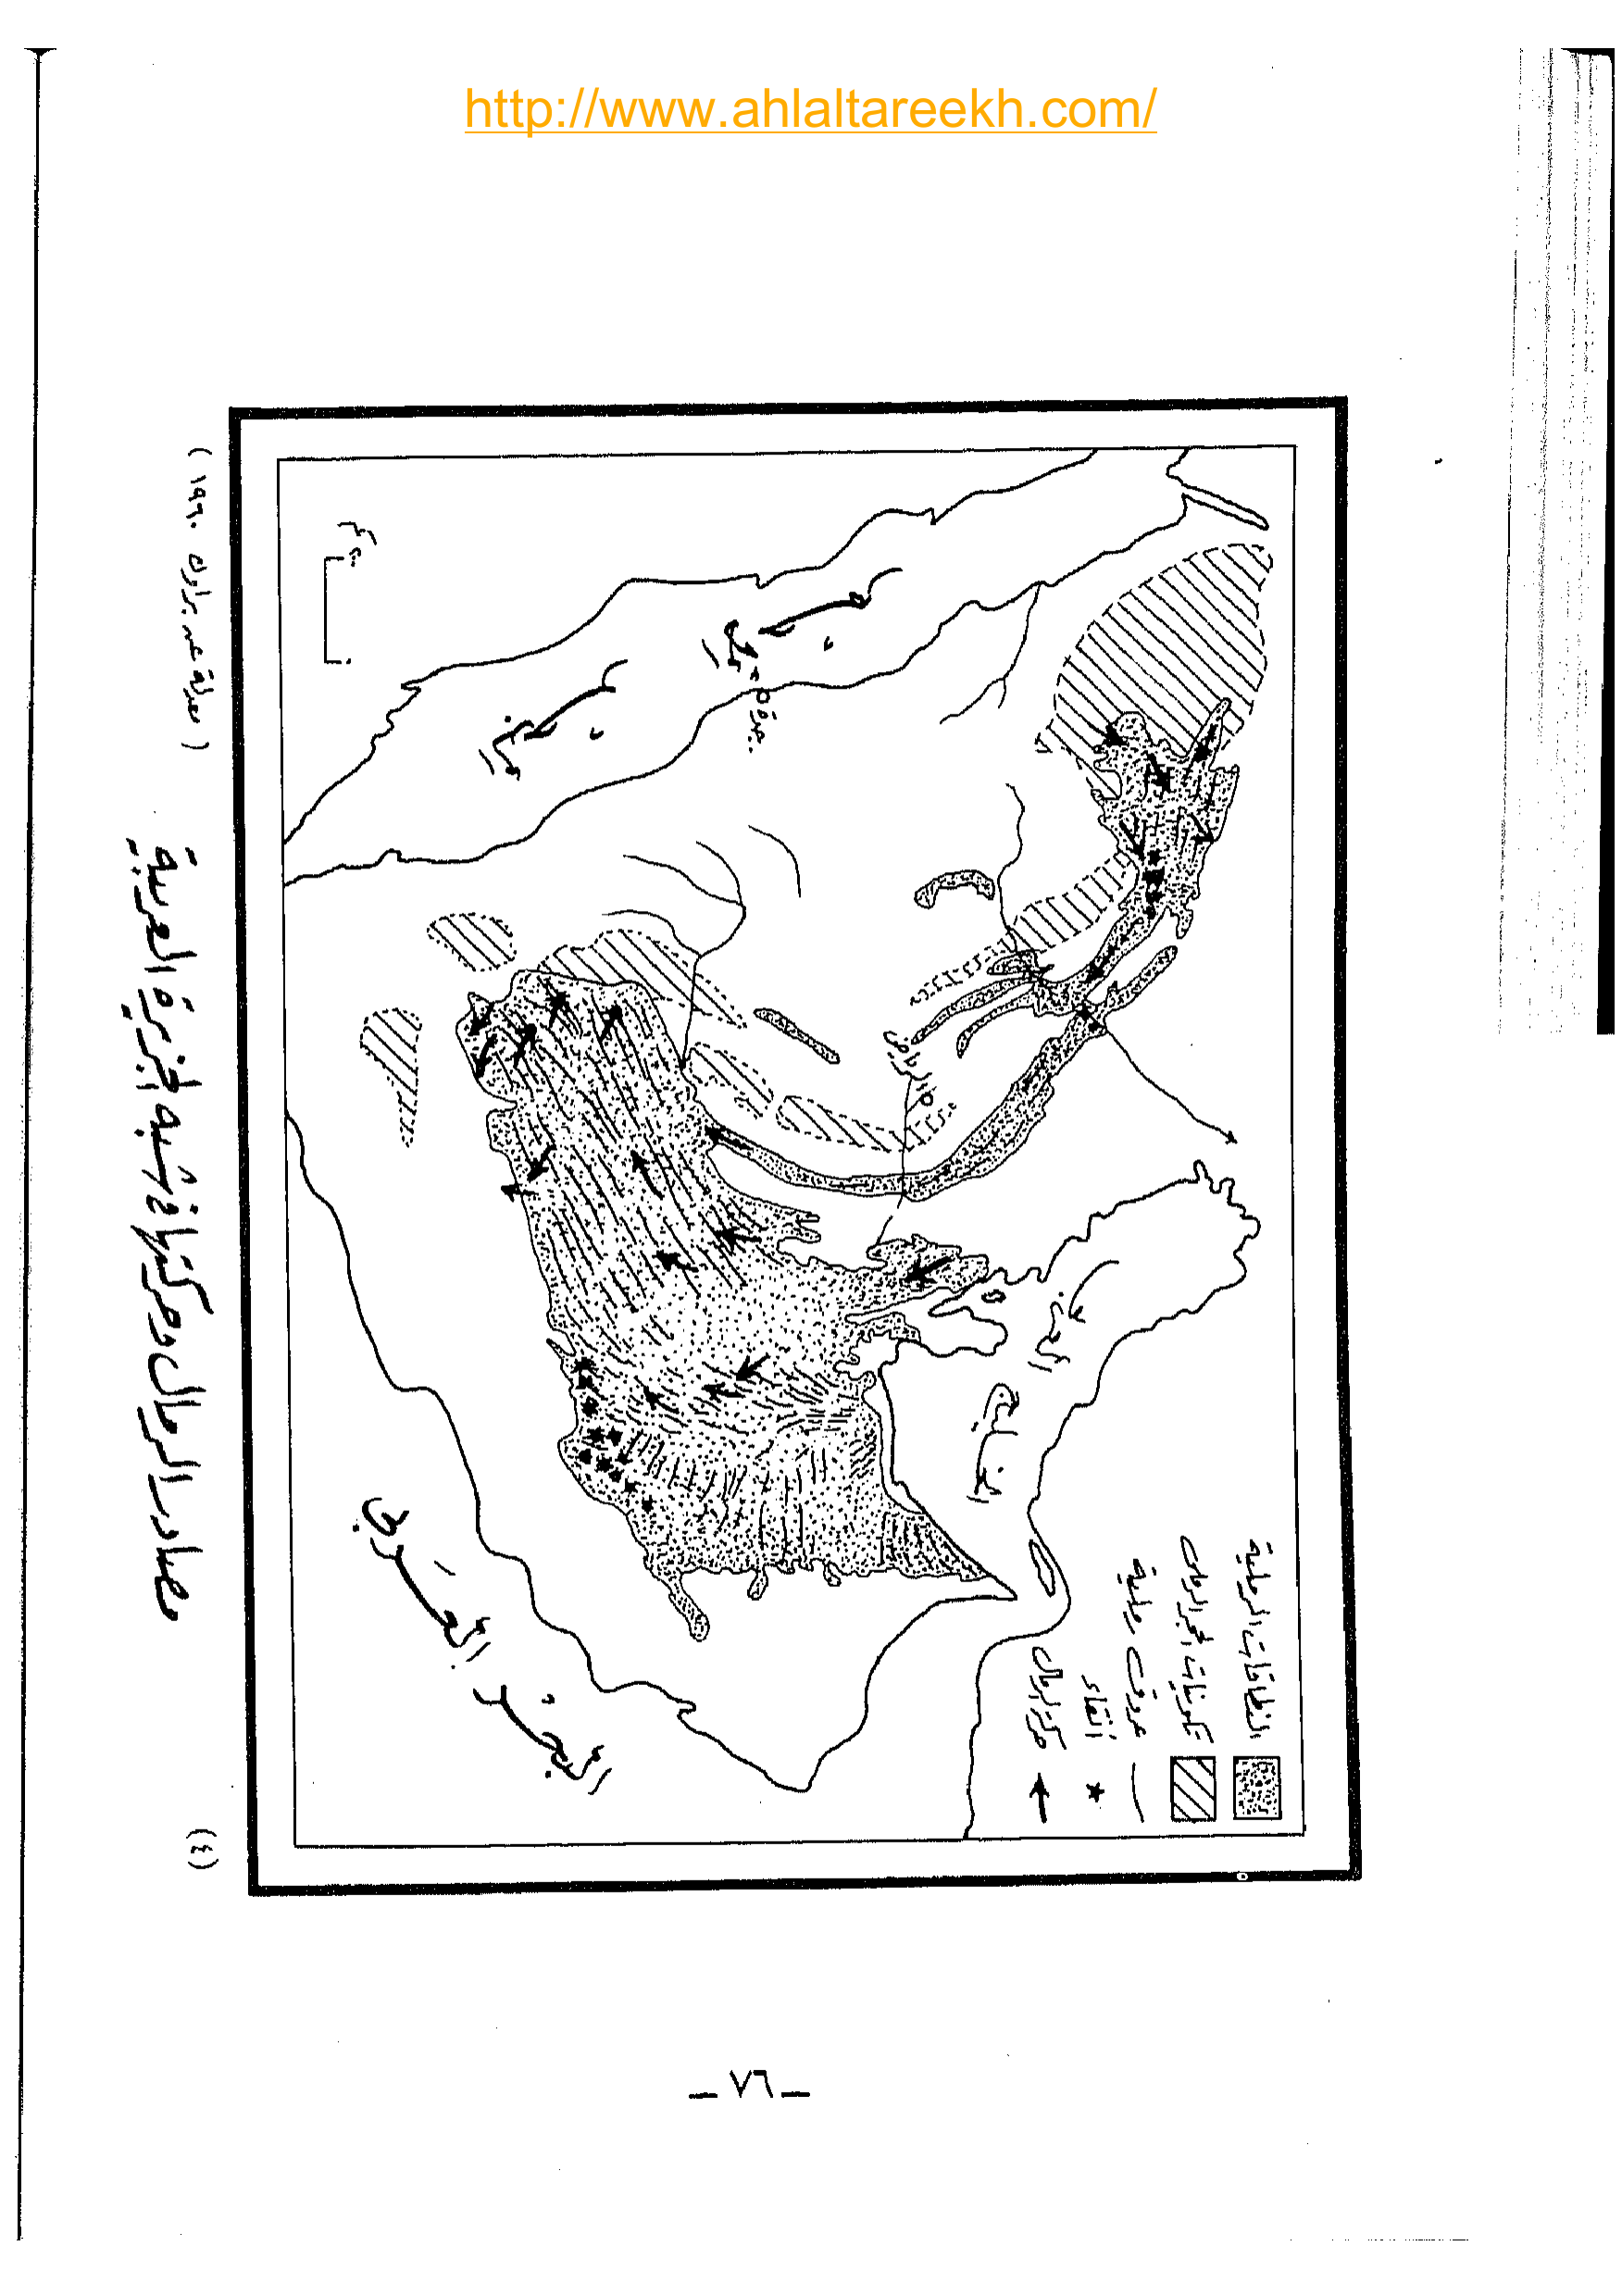 http://www.ahlaltareekh.com/
النطاقات الرملية
تكوينات الحجر الرملى
عروق رملية
أنقاء
حركة الرمال
الخليج
العربي
الرياض
جدة
البحر
الأحمر
البحر العربي
(٤)
مصادر الرمال وحركتها فى شبه الجزيرة العربية
( معدلة عن براون ١٩٦٠ )
– ٧٦ –